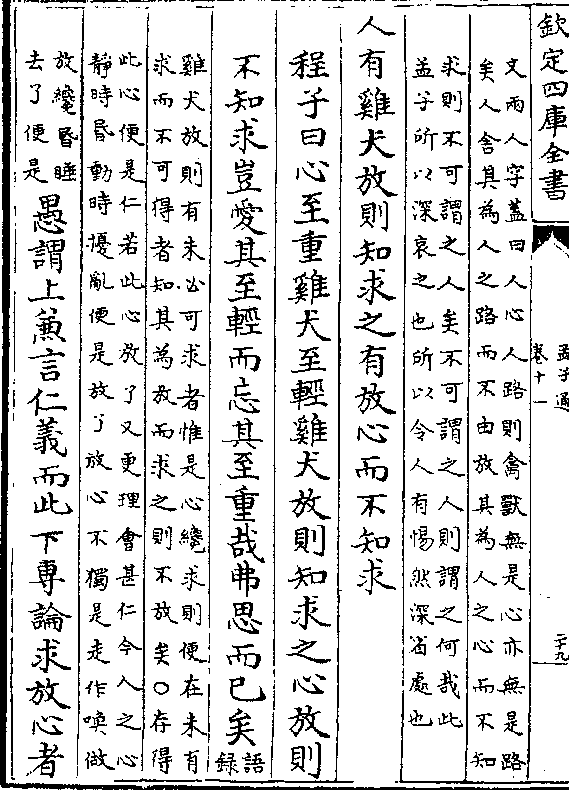 欽定四庫全書
孟子通
卷十一
二十九
文兩人字蓋曰人心人路則禽獸無是心亦無是路
矣人舍其為人之路而不由放其為人之心而不知
求則不可謂之人矣不可謂之人則謂之何哉此
孟子所以深哀之也所以令人有惕然深省處也
人有雞犬放則知求之有放心而不知求
程子曰心至重雞犬至輕雞犬放則知求之心放則
不知求豈愛其至輕而忘其至重哉弗思而已矣
語
録
雞犬放則有未必可求者惟是心纔求則便在未有
求而不可得者知其為放而求之則不放矣○存得
此心便是仁若此心放了又更理會甚仁今人之心
靜時昏動時擾亂便是放了放心不獨是走作喚做
放纔昏睡
去了便是
愚謂上兼言仁義而此下專論求放心者